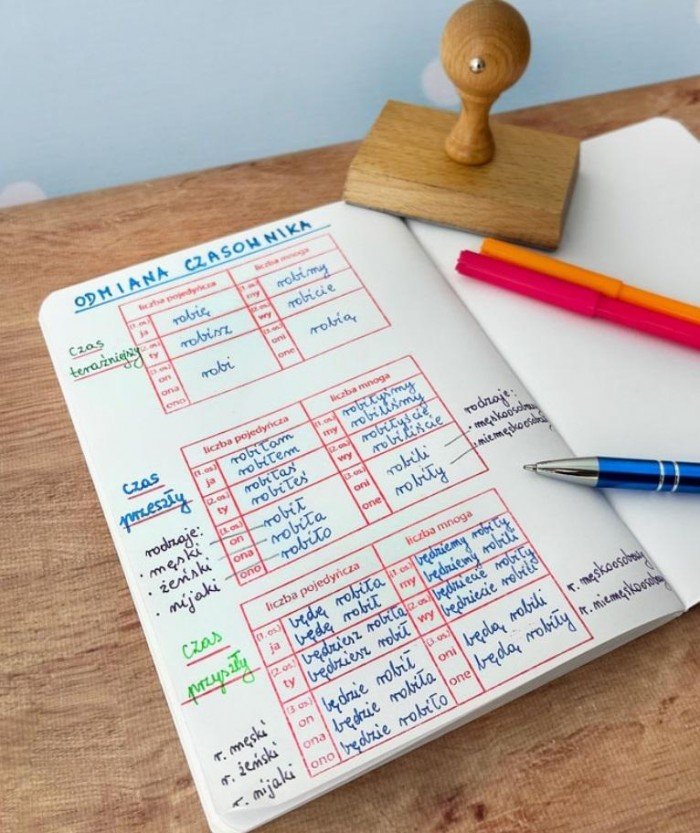 ODMIANA CZASOWNIKA
Czas
teraźniejszy
liczba pojedyncza
liczba mnoga
(1.os.) ja
robię
(1.os.) my
robimy
(2.os.) ty
robisz
(2.os.) wy
robicie
(3.os.) on
ona
ono
robi
(3.os.) oni
one
robią
czas
przeszły
liczba pojedyńcza
liczba mnoga
(1.os.) ja
robiłam
robiłem
(1.os.) my
robiłyśmy
robiliśmy
(2.os.) ty
robiłaś
robiłeś
(2.os.) wy
robiłyście
robiliście
(3.os.) on
robił
ona
robiła
ono
robiło
(3.os.) oni
robili
one
robiły
rodzaje:
· męski
· żeński
· nijaki
rodzaje:
· męskoosobowy
· niemęskoosob
czas
przyszły
liczba pojedyńcza
liczba mnoga
(1.os.) ja
będę robiła
będę robił
(1.os.) my
będziemy robiły
będziemy robili
(2.os.) ty
będziesz robiła
będziesz robił
(2.os.) wy
będziecie robiły
będziecie robili
(3.os.) on
będzie robił
ona
będzie robiła
ono
będzie robiło
(3.os.) oni
będą robili
one
będą robiły
r. męski
r. żeński
r. nijaki
r. męskoosobowy
r. niemęskoosobowy